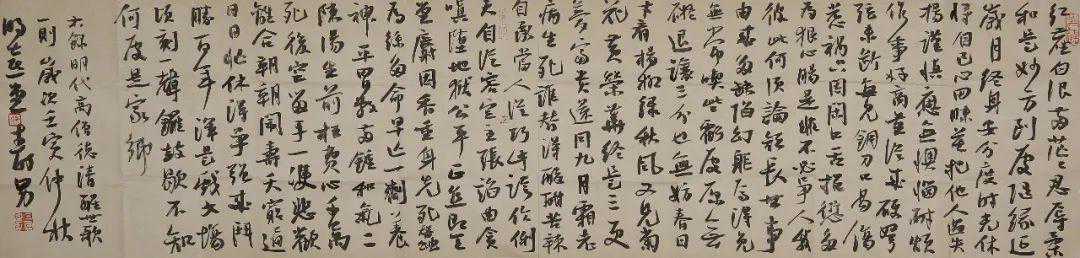 紅塵白浪兩茫茫忍辱柔
和是妙方到處隨緣延
歲月終身安分度時光休
將自己心田昧莫把他人過失
揚謹慎應無懊惱耐煩
作事好商量從來硬弩
弦先斷每見鋼刀口易傷
惹禍只因閑口舌招愆多
為狠心腸是非不必爭人我
彼此何須論短長世事
由來多缺陷幻軀焉得免
無常喫些虧處原無
礙退讓三分也無妨春日
才看楊柳綠秋風又見菊
花黃榮華終是三更
夢富貴還同九月霜老
病生死誰替得酸甜苦辣
自承當人從巧計誇伶俐
天自從容定主張諂曲貪
嗔墮地獄公平正直即天
堂麝因香重身先死蠶
為絲多命早亡一劑養
神平胃散兩鍾和氣二
陳湯生前枉費心千萬
死後空留手一雙悲歡
離合朝朝鬧壽夭窮通
日日忙休得爭強來鬥
勝百年渾是戲文場
頃刻一聲鑼鼓歇不知
何處是家鄉
明代高僧德清醒世歌
一則歲次壬寅仲秋
男